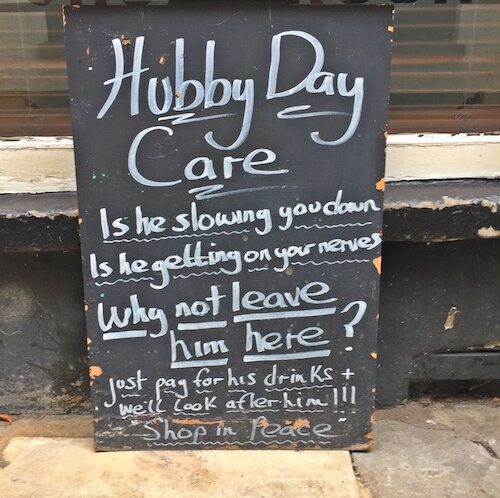 Hubby Day
Care
Is he slowing you down
Is he getting on your nerves
Why not leave
him here ?
just pay for his drinks +
we'll look after him !!!
Shop in Peace